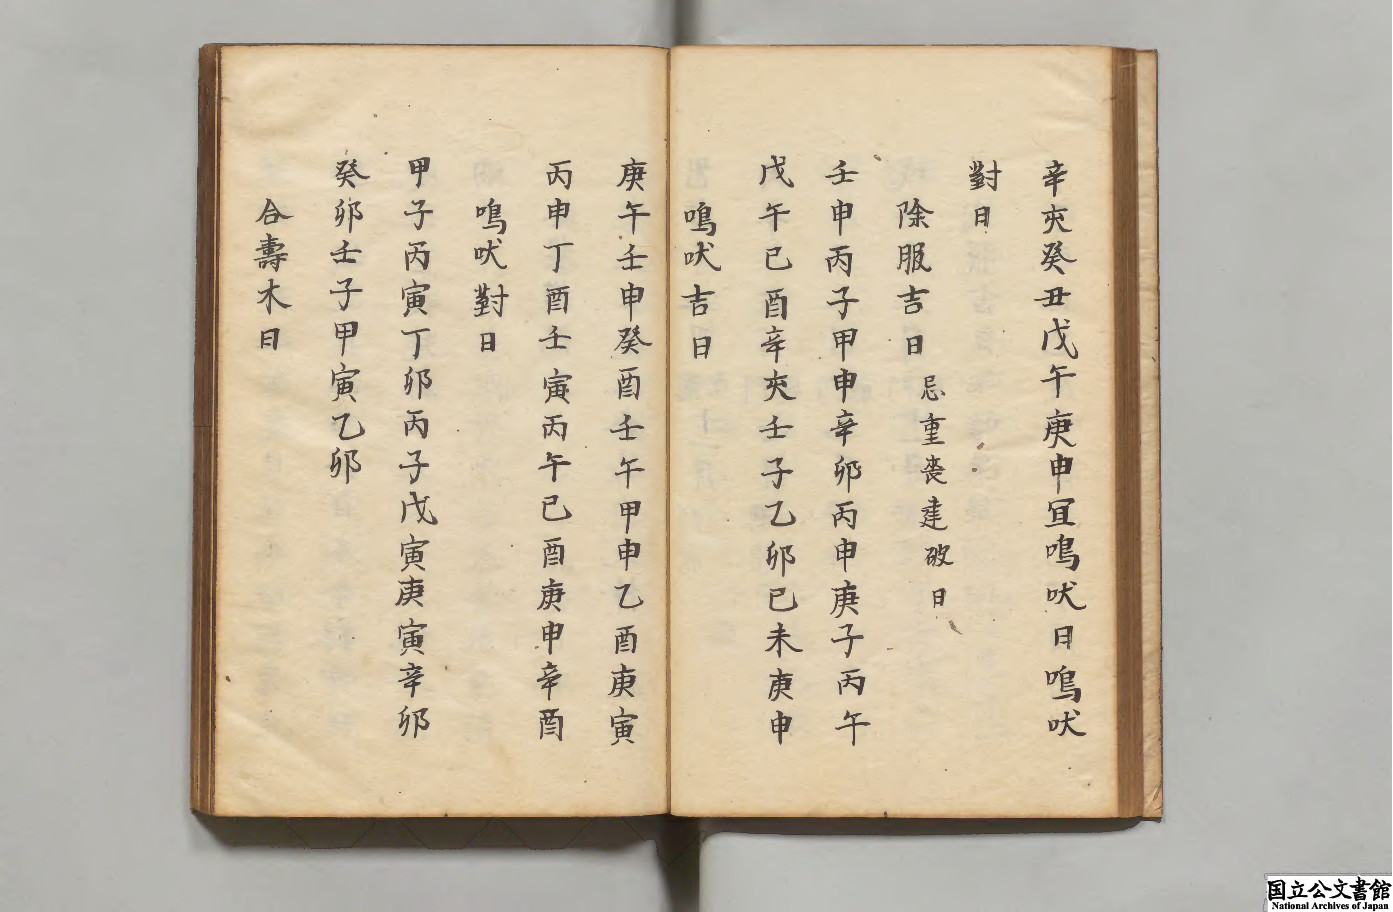 辛亥癸丑戊午庚申宜鳴吠日鳴吠
對日
除服吉日 忌重喪建破日
壬申丙子甲申辛卯丙申庚子丙午
戊午己酉辛亥壬子乙卯己未庚申
鳴吠吉日
庚午壬申癸酉壬午甲申乙酉庚寅
丙申丁酉壬寅丙午己酉庚申辛酉
鳴吠對日
甲子丙寅丁卯丙子戊寅庚寅辛卯
癸卯壬子甲寅乙卯
合壽木日
国立公文書館
National Archives of Japan